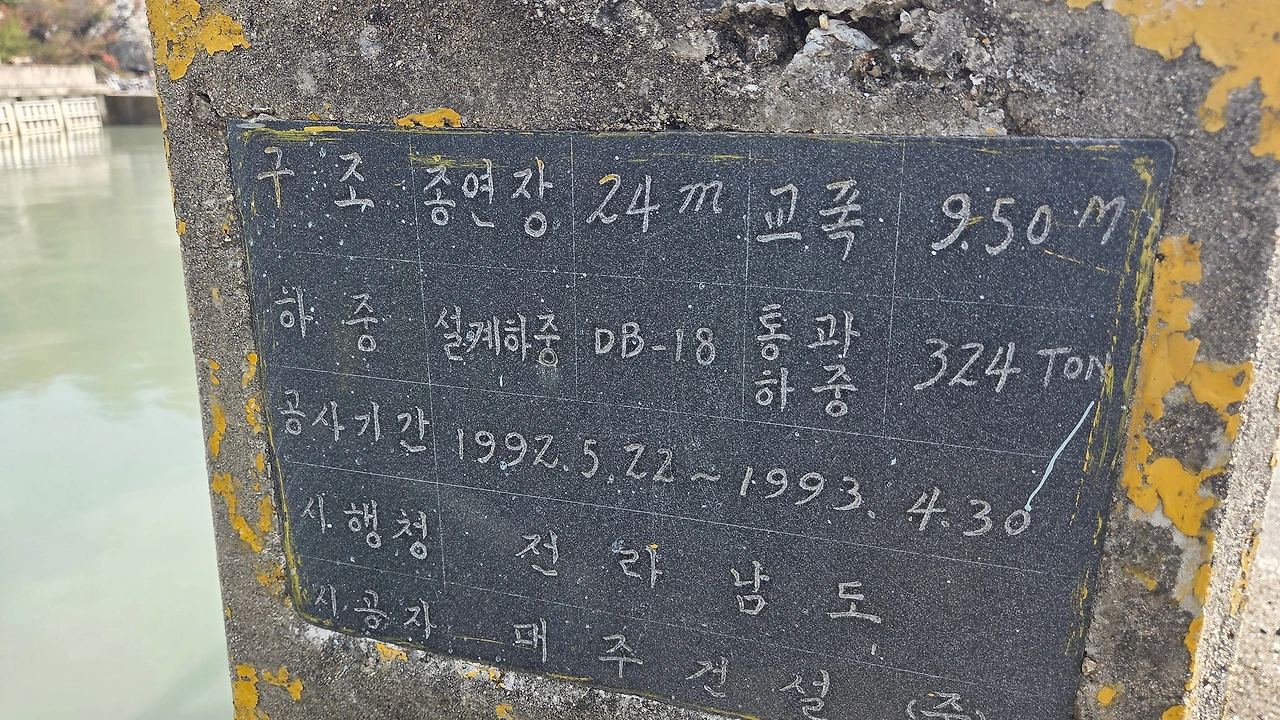 구 조 총연장 24 m 교폭 9.50 M
하 중 설계하중 DB-18 통과하중 324 TON
공사기간 1992.5.22 ~ 1993. 4.30
시행청 전 라 남 도
시공자 대 주 건 설 (주)